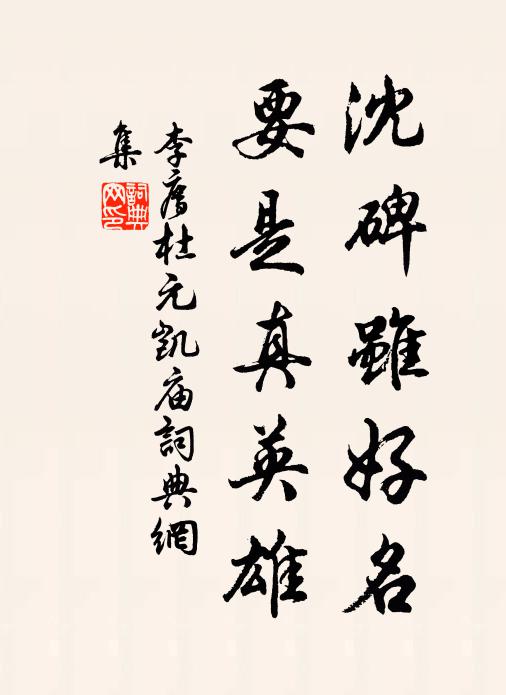 沈碑雖好名
要是真英雄
李廌杜元凱庙詞典網
集
詞典网印